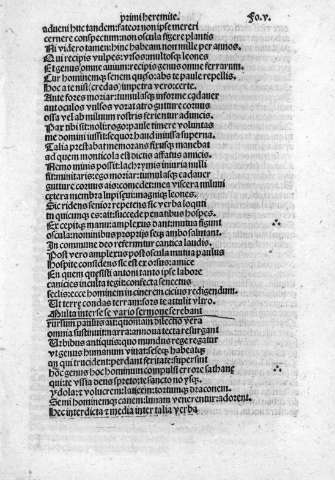 primi heremite. Fo.v.
adveni huc tandem: fateor non ipse mereri
cernere conspectum: non oscula figere plantis
Ni videro tamen: hinc habeam non mille per annos.
Qui recipis vulpes: vrsos: multosq; leones
Et genus omne auium: recipis genus omne ferrarum.
Cur hominemq; senem quęso: abs te paule repellis.
Hoc a te nisi (credas) impetra vero: certe.
Ante fores moriar: tumulasq; informe cadauer
aut oculos vulsos vorat atro gutture coruus
ossa vel ab milium rostris ferientur aduncis.
Par tibi sit: noli: rogo: paule timere voluntas
me domini iussit: sequor haud iniussa superna.
Talia prestabat memorans fixusq; manebat
ad quem monticola est dictus affatus amicis.
Nemo minis possit: lachrymis iniuria nulli
fit: munitaris: ego moriar: tumulasq; cadauer
gutture coruus ais: comedet: mea viscera milui
extera membra lupi: seui: magniq; leones.
Sic ridens senior repetens sic verba loqui
in quicunq; es: ait: succede penatibus hospes.
Et cepit q; manu: amplexus dant mutua figunt
oscula: nominibus proprijs seseq; ambo salutant.
In commune deo referuntur cantica laudis.
Post vero amplexus post oscula mutua paulus
Hospite considens sic est exorsus: amice
En quem quesisti antoni tanto ipse labore
canicies inculta tegit: confecta senectus
felis: ecce hominem in cinerem cicius redigendum.
Ut terre condas terram: fors te attulit vltro.
Multa inter se se vario sermone serebant
rursum paulus ait: quoniam dilectio vera
omnia sustinuit: narra: an noua tecta resurgant
Urbibus antiquis: quo mundus rege regatur
vt genus humanum viuat: seseq; habeat q;
an qui trucident: perdant feritate: supersint
hoc genus hoc hominum compulsi errore sathanę
qui: te yssia deus spreto: te sancto noysq;
ydola: et volucrem: lancem: tortumq; draconem.
Semi hominemq; canem: lunam venerentur: adorent.
Hec interdicta et media inter talia verba